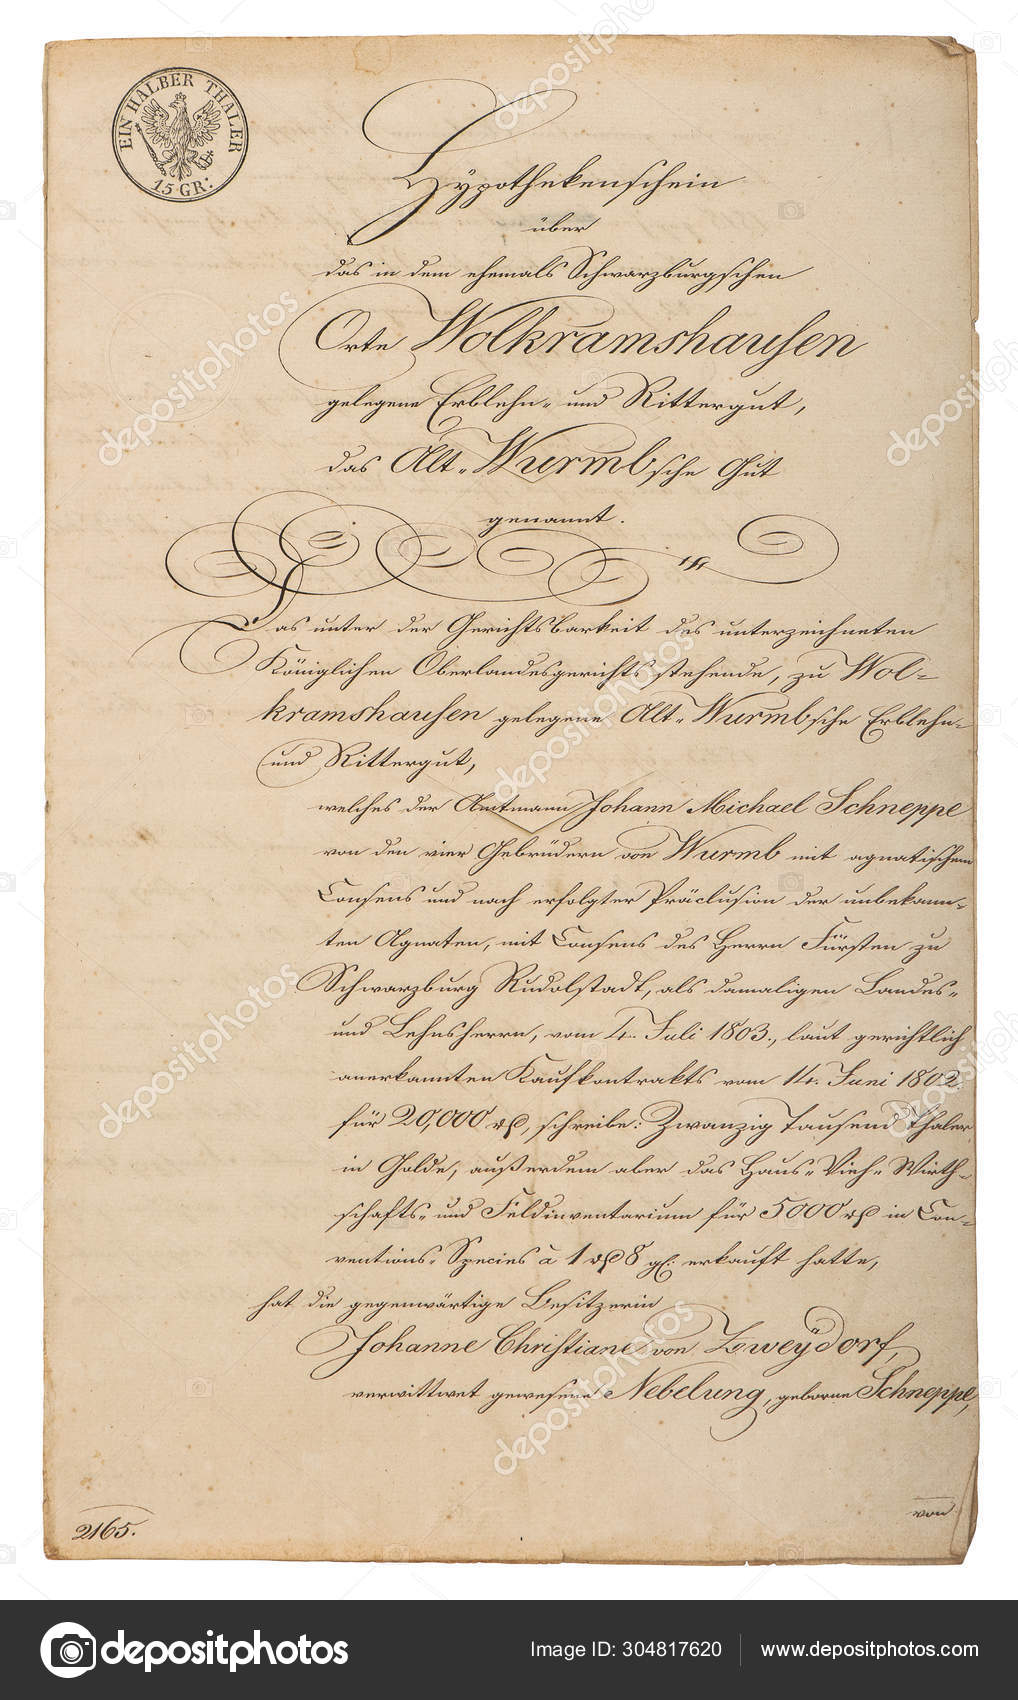 EIN HALBER THALER
15 GR:
Hypothekenschein
über
das in dem ehemals Schwarzburgschen
Orte Wolkramshausen
gelegene Erblehn- und Rittergut,
das Alt-Wurmbsche Gut
genannt.
Das unter der Gerichtsbarkeit des unterzeichneten
Königlichen Oberlandesgerichts stehende, zu Wol=
kramshausen gelegene Alt-Wurmbsche Erblehn-
und Rittergut,
welches der Amtmann Johann Michael Schneppe
von den vier Gebrüdern von Wurmb mit agnatischem
Consens und nach erfolgter Präclusion der unbekann=
ten Agnaten, mit Consens des Herrn Fürsten zu
Schwarzburg Rudolstadt, als damaligen Landes-
und Lehnsherrn, vom 4. Juli 1803., laut gerichtlich
anerkannten Kaufkontrakts vom 14. Juni 1802.
für 20,000 rß, schreibe: Zwanzig Tausend Thaler
in Golde, außerdem aber das Haus- Vieh- Wirth-
schafts- und Feldinventarium für 5000 rß in Con=
ventions- Species à 1 rß 8 gl: erkauft hatte,
hat die gegenwärtige Besitzerin
Johanne Christiane von Zweydorf,
verwittwet gewesene Nebelung, geborne Schneppe,
von
2165.
depositphotos
Image ID: 304817620
www.depositphotos.com